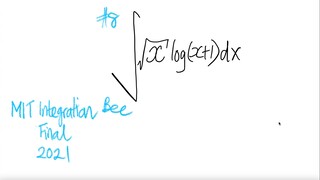 #8
∫√x log(x+1)dx
MIT Integration Bee
Final
2021